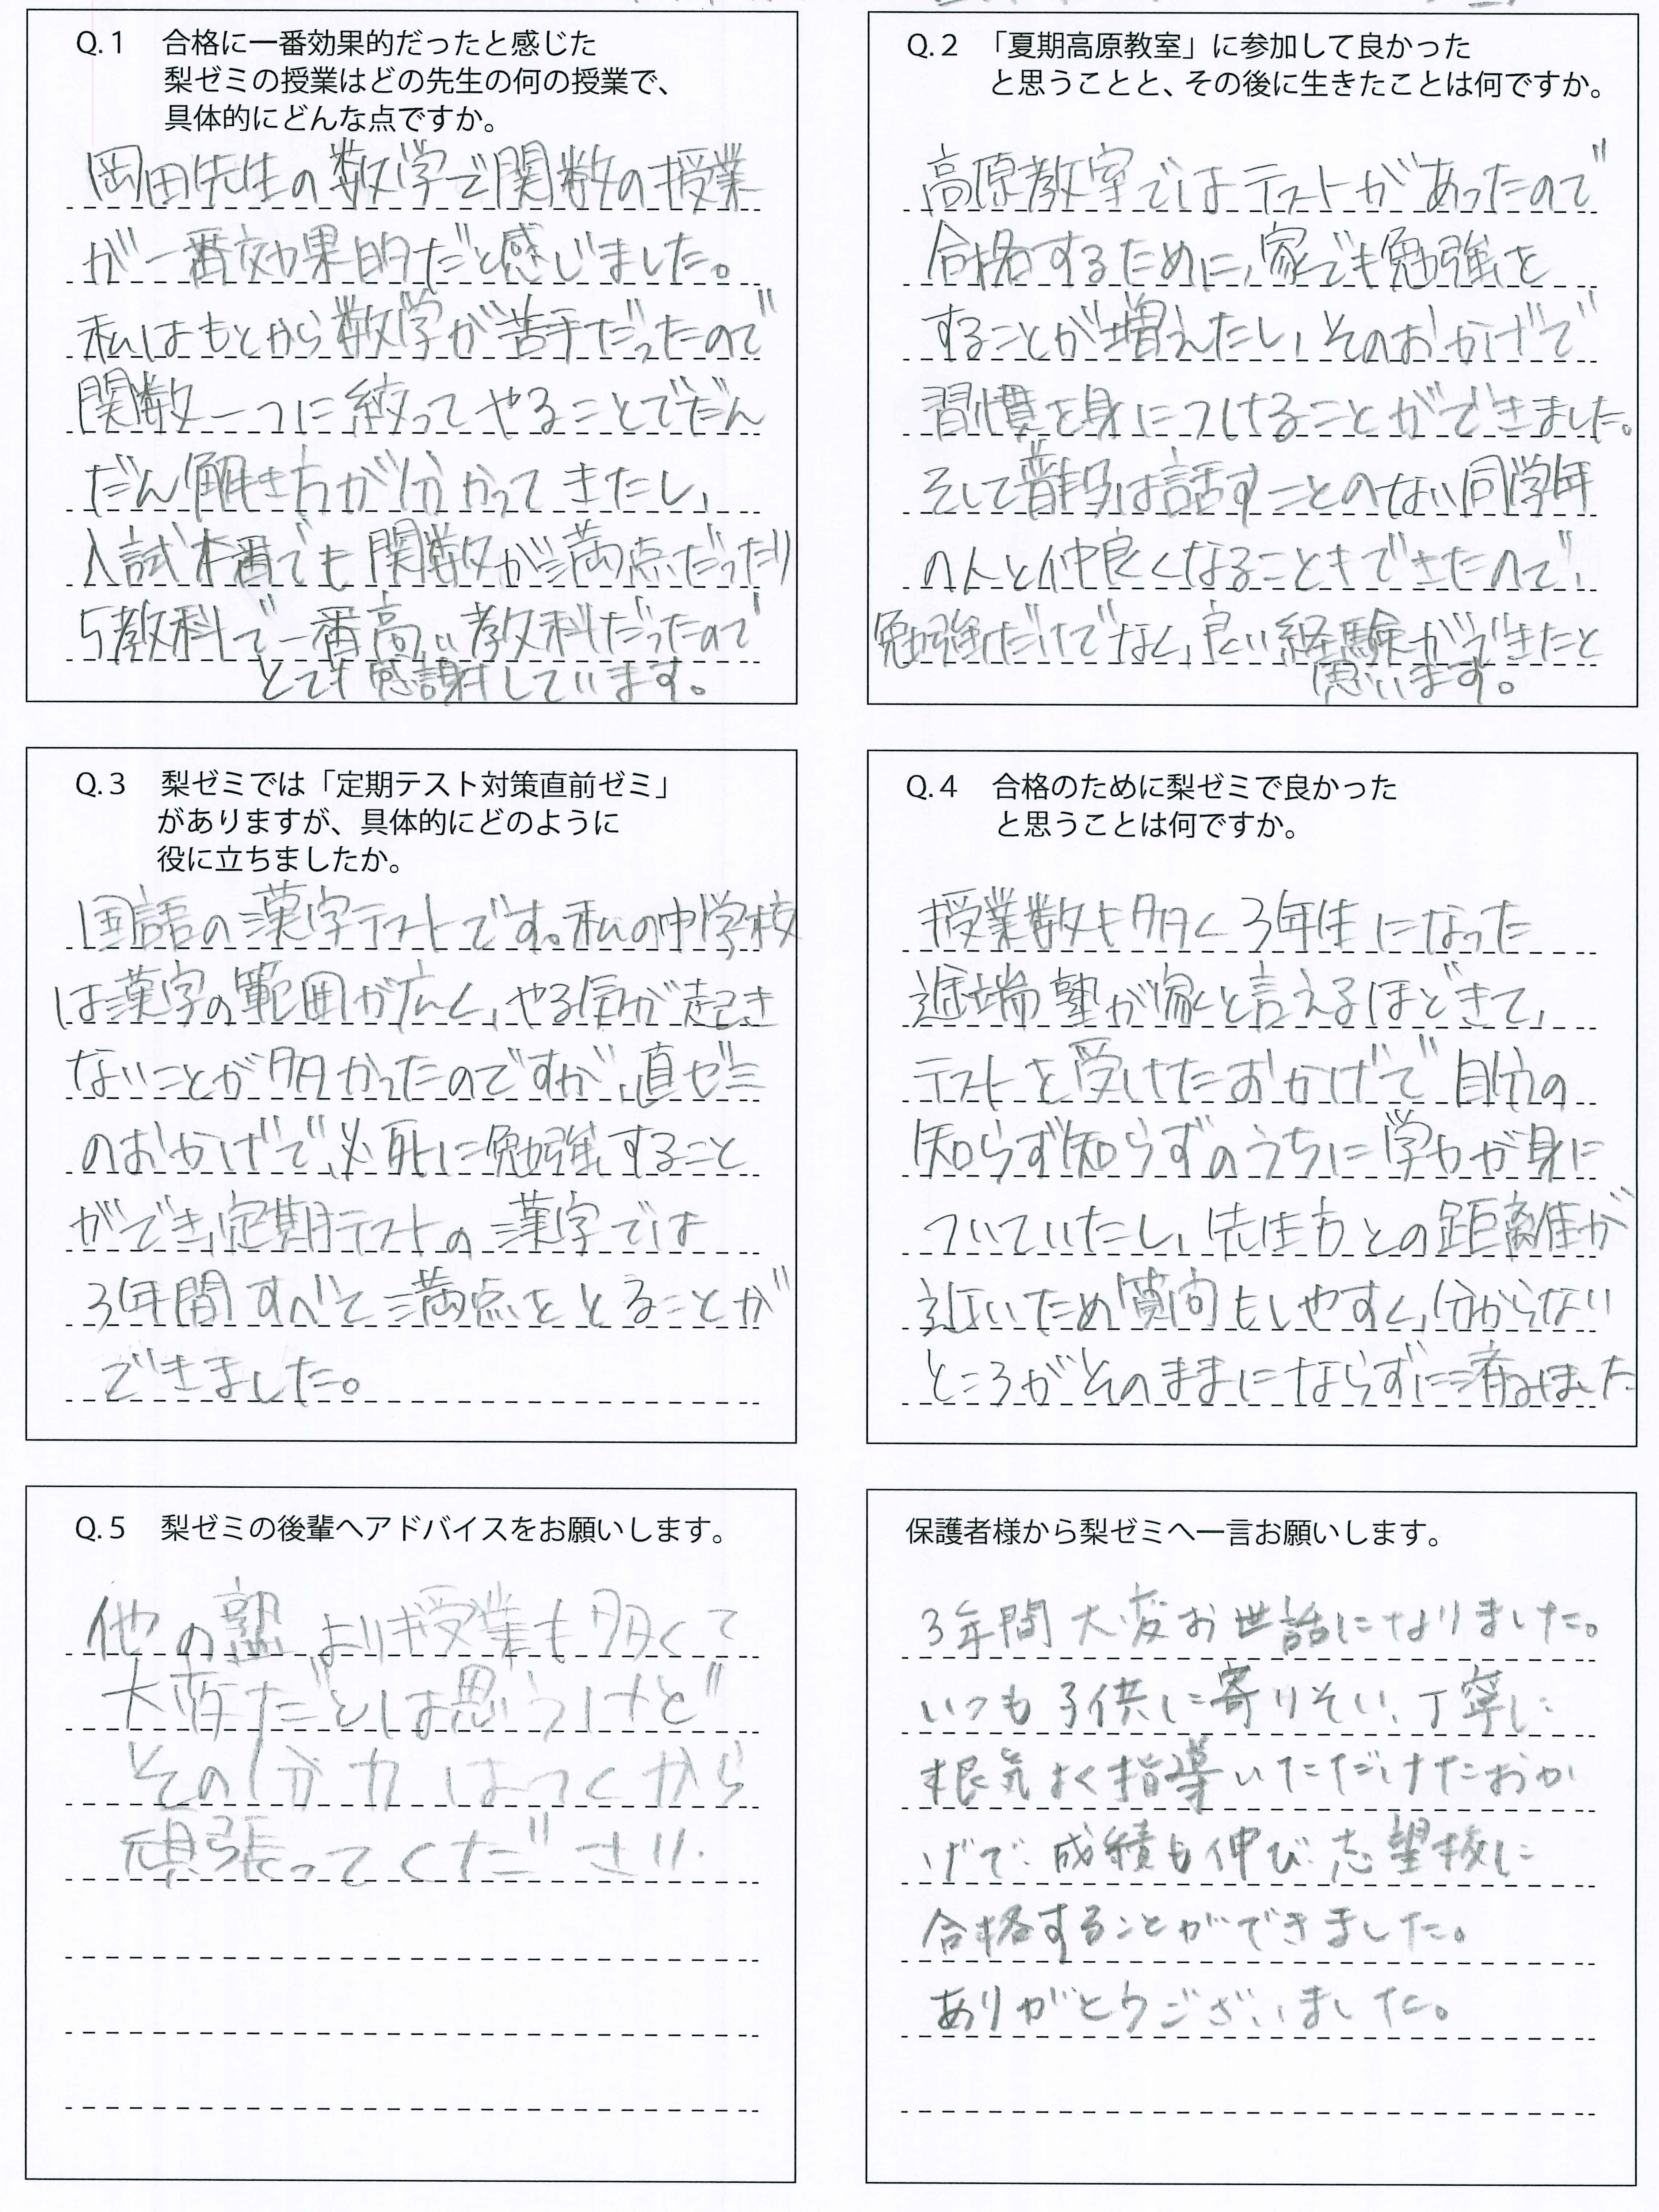 Q.1 合格に一番効果的だったと感じた
梨ゼミの授業はどの先生の何の授業で、
具体的にどんな点ですか。
岡田先生の数学で関数の授業
が一番効果的だと感じました。
私はもとから数学が苦手だったので
関数一つに絞ってやることでだん
だん解き方が分かってきたし、
入試本番でも関数が満点だったり
5教科で一番高い教科だったので
とても感謝しています。
Q.2 「夏期高原教室」に参加して良かった
と思うことと、その後に生きたことは何ですか。
高原教室ではテストがあったので
合格するために、家でも勉強を
することが増えたし、そのおかげで
習慣を身につけることができました。
そして普段は話すことのない同学年
の人と仲良くなることもできたので、
勉強だけでなく、良い経験ができたと
思います。
Q.3 梨ゼミでは「定期テスト対策直前ゼミ」
がありますが、具体的にどのように
役に立ちましたか。
国語の漢字テストです。私の中学校
は漢字の範囲が広く、やる気が起き
ないことが多かったのですが、直ゼミ
のおかげで、必死に勉強すること
ができ、定期テストの漢字では
3年間すべて満点をとることが
できました。
Q.4 合格のために梨ゼミで良かった
と思うことは何ですか。
授業数も多く3年生になった
途端塾が家と言えるほどきて、
テストを受けたおかげで自分の
知らず知らずのうちに学力が身に
ついていたし、先生方との距離が
近いため質問もしやすく、分からない
ところがそのままにならずに済みました
Q.5 梨ゼミの後輩へアドバイスをお願いします。
他の塾よりも授業も多くて
大変だとは思うけど
その分力はつくから
頑張ってください。
保護者様から梨ゼミへ一言お願いします。
3年間大変お世話になりました。
いつも子供に寄りそい、丁寧に
根気よく指導いただけたおか
げで、成績も伸び、志望校に
合格することができました。
ありがとうございました。